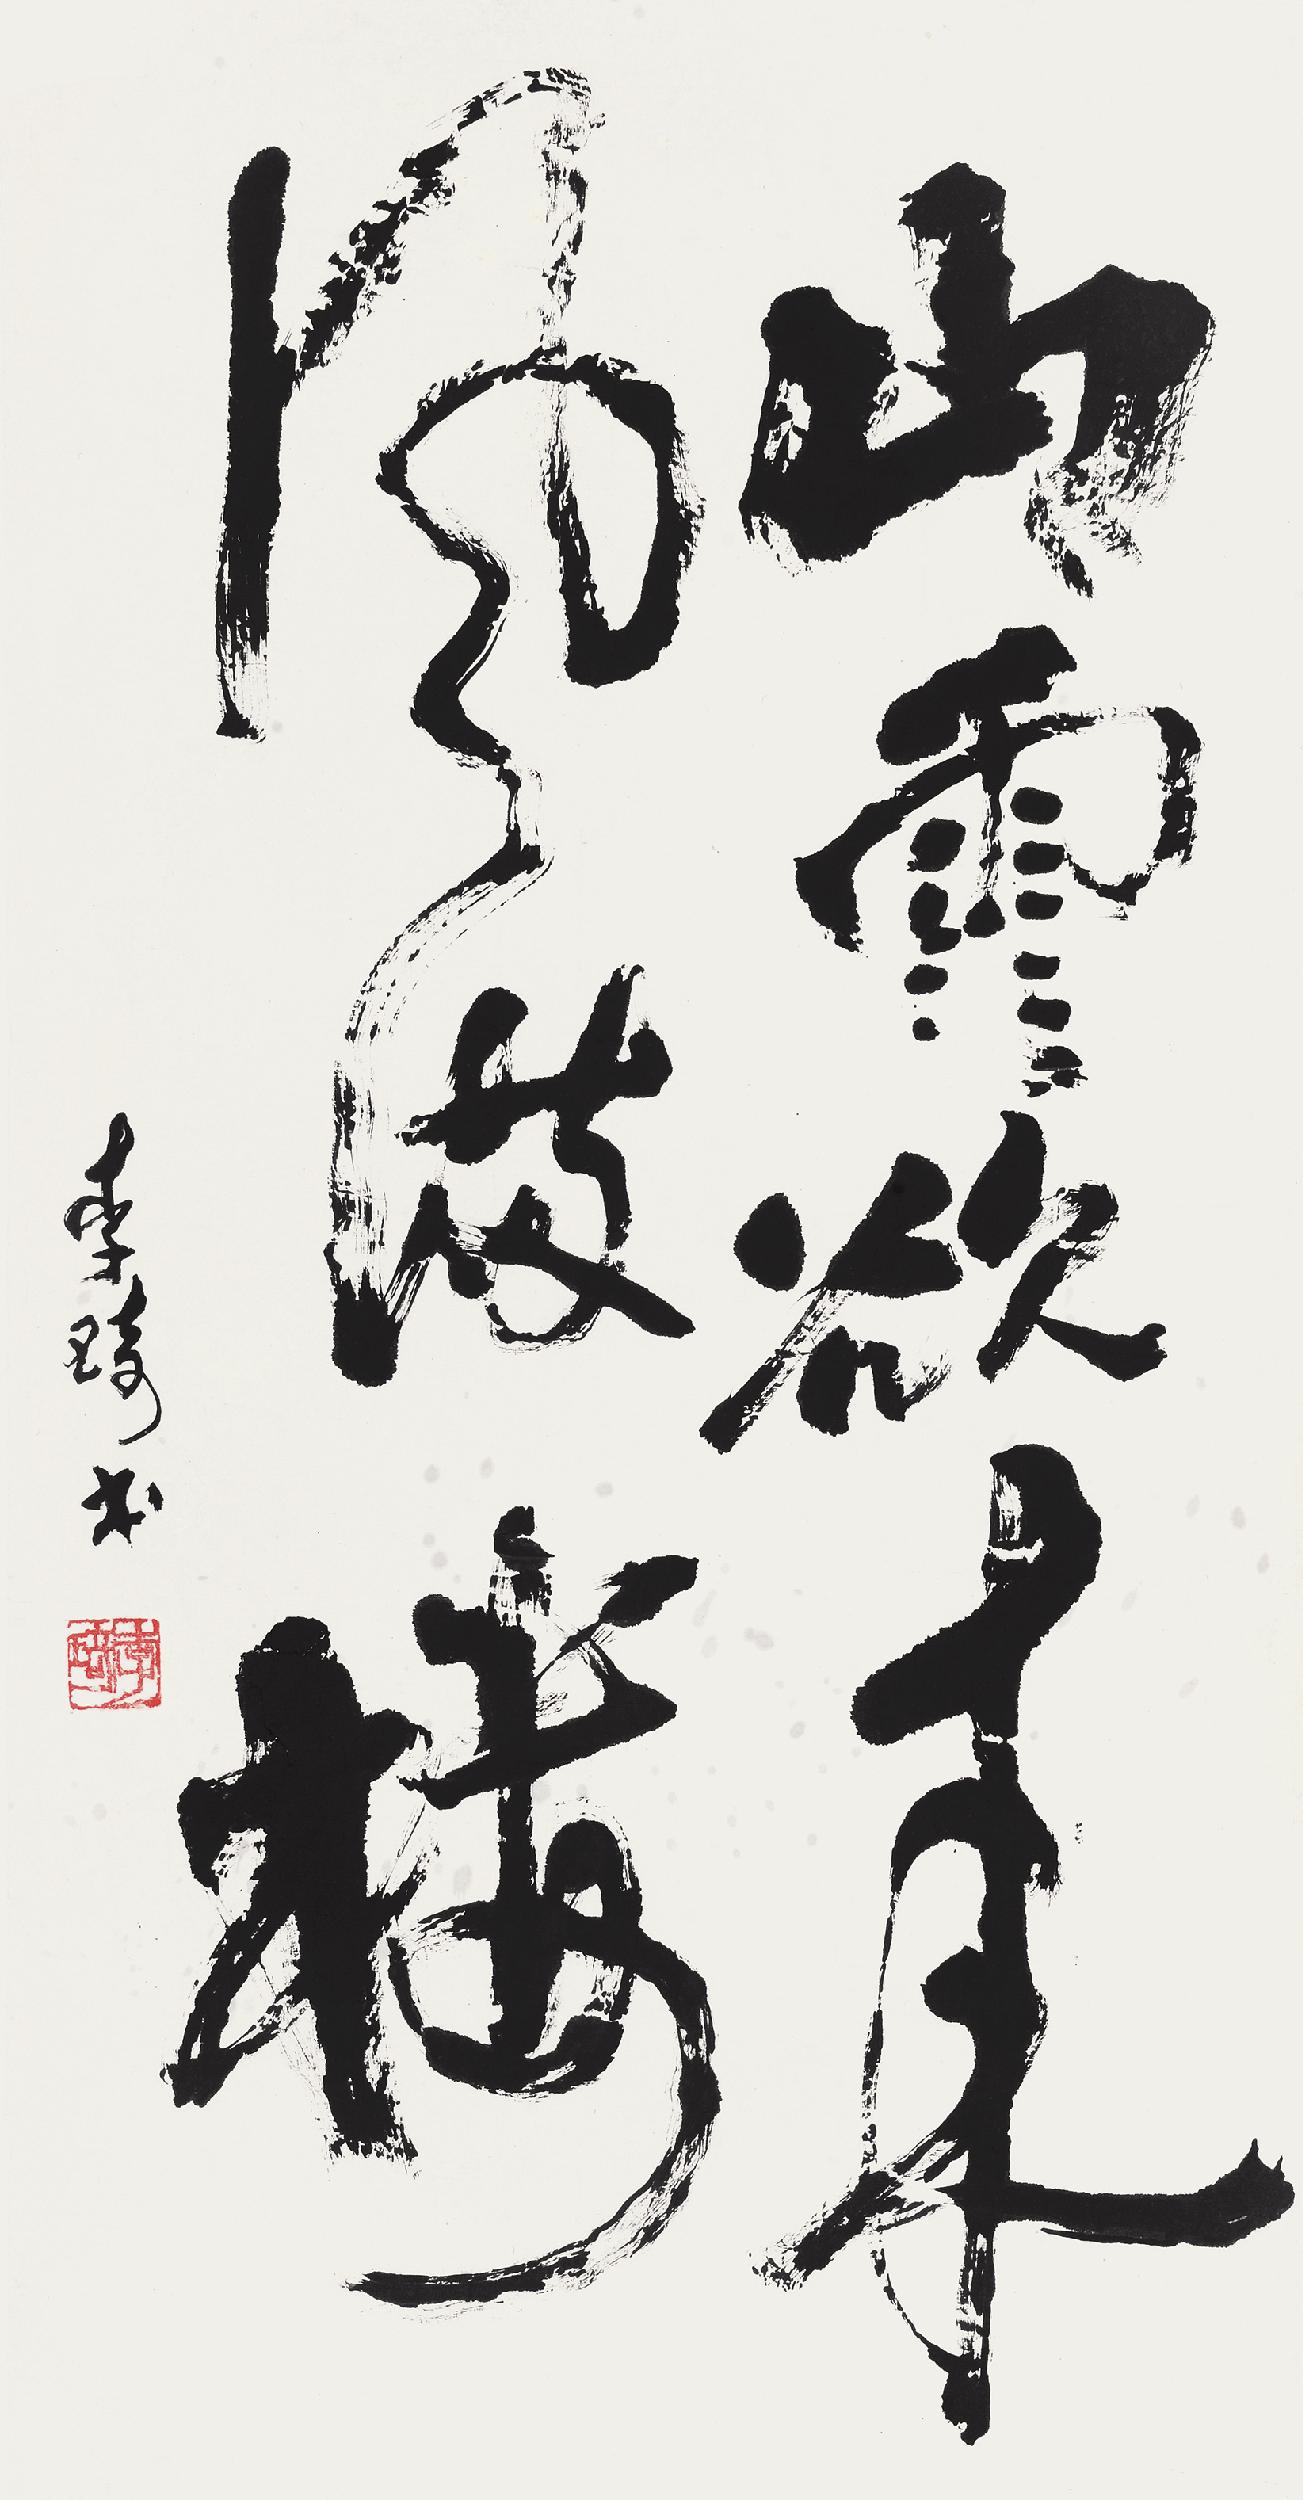 山雨欲来
风满楼
李琦书